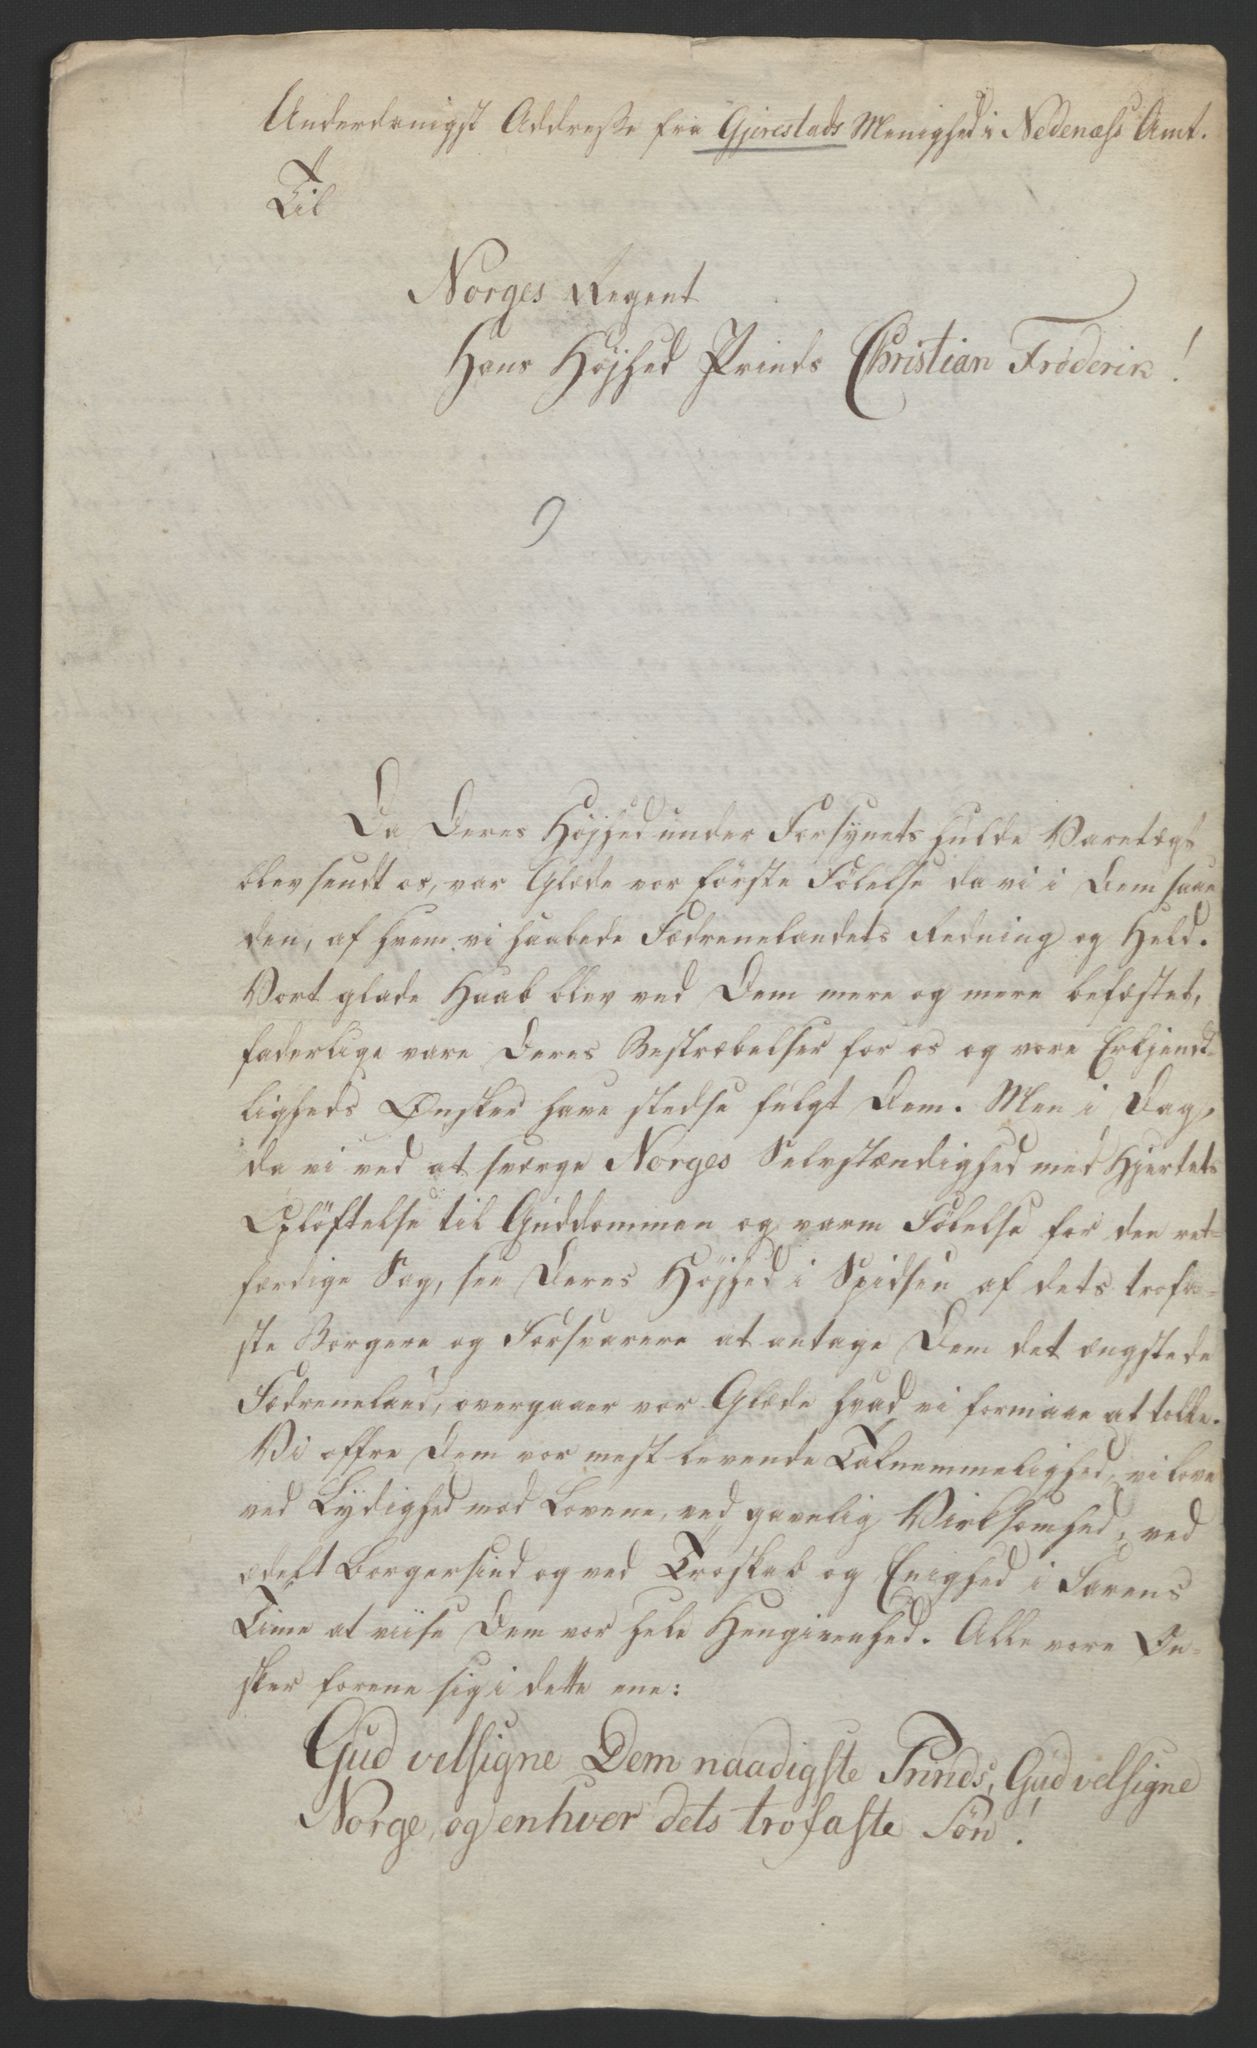 Underdanigst Addresse fra Gjerestads Menighed i Nedenæss Amt.
Til
Norges Regent
Hans Højhed Prinds Christian Fröderik!
9
Da Deres Højhed under Forsynets hulde Varetægt
blev sendt os, var Glæde vor første Følelse da vi i Dem saae
den, af hvem vi haabede Fædrenelandets Redning og Held.
Vort glade Haab blev ved Dem mere og mere befæstet,
faderlige vare Deres Bestræbelser for os og vore Erkjendt-
ligheds Ønsker have stedse fulgt Dem. Men i Dag,
da vi ved at sværge Norges Selvstændighed med Hjertets
Opløftelse til Guddommen og varm Følelse for den ret-
færdige Sag, see Deres Højhed i Spidsen af dets trofa-
ste Borgere og Forsvarere at antage Dem det ængstede
Fædreneland, overgaaer vor Glæde hvad vi formaae at tolke.
Vi offre Dem vor mest levende Taknemmelighed, vi love
ved Lydighed mod Lovene, ved gavnlig Virksomhed, ved
ædelt Borgersind og ved Troskab og Enighed i Farens
Time at viise Dem vor hele Hengivenhed. Alle vore Øn-
sker forene sig i dette ene:
Gud velsigne Dem naadigste Prinds, Gud velsigne
Norge, og enhver dets trofaste Søn!